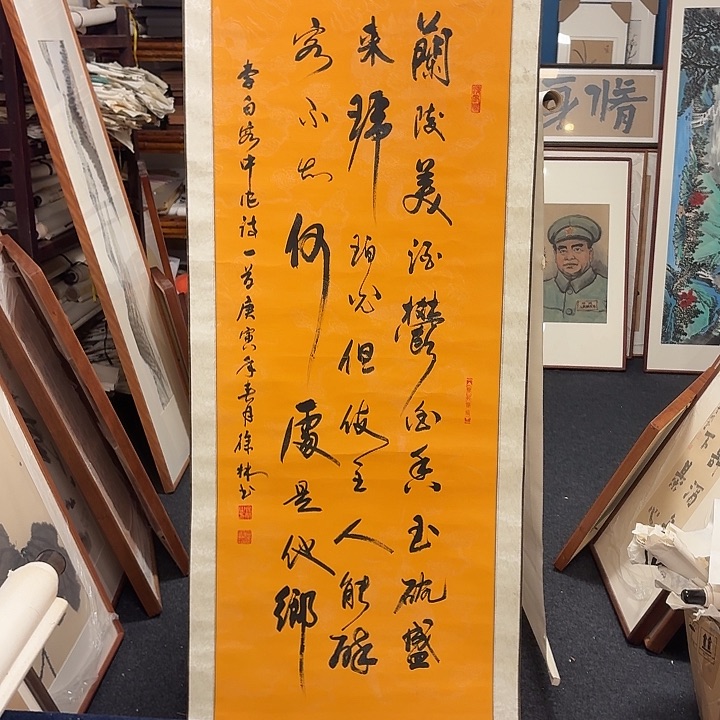 蘭陵美酒鬱金香玉碗盛
来琥珀光但使主人能醉
客不知何處是他鄉
李白客中作诗一首庚寅年春月徐林书